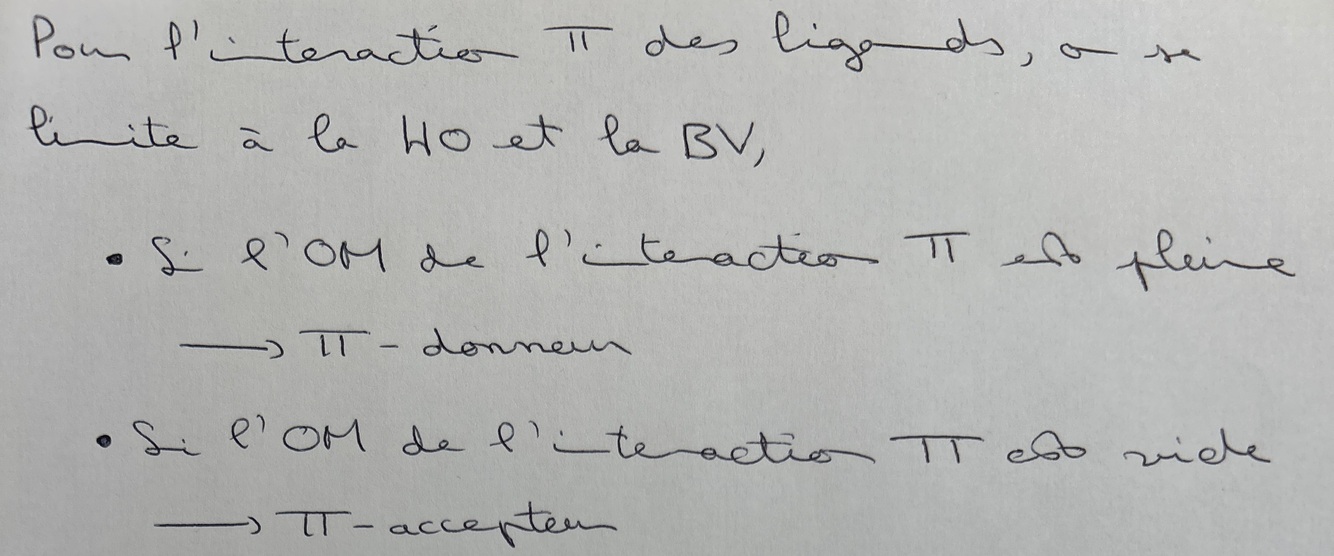 Pour l'interaction π des ligands, on se
limite à la HO et la BV,
• Si l'OM de l'interaction π est pleine
→ π-donneur
• Si l'OM de l'interaction π est vide
→ π-accepteur